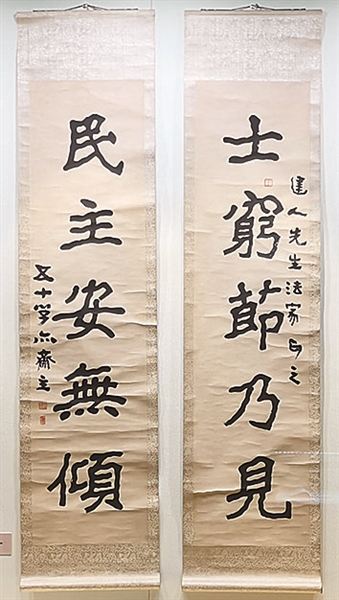 建人先生法家正之
士窮節乃見
民主安無傾
五十學齋主